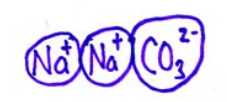 Na⁺ Na⁺ CO₃²⁻